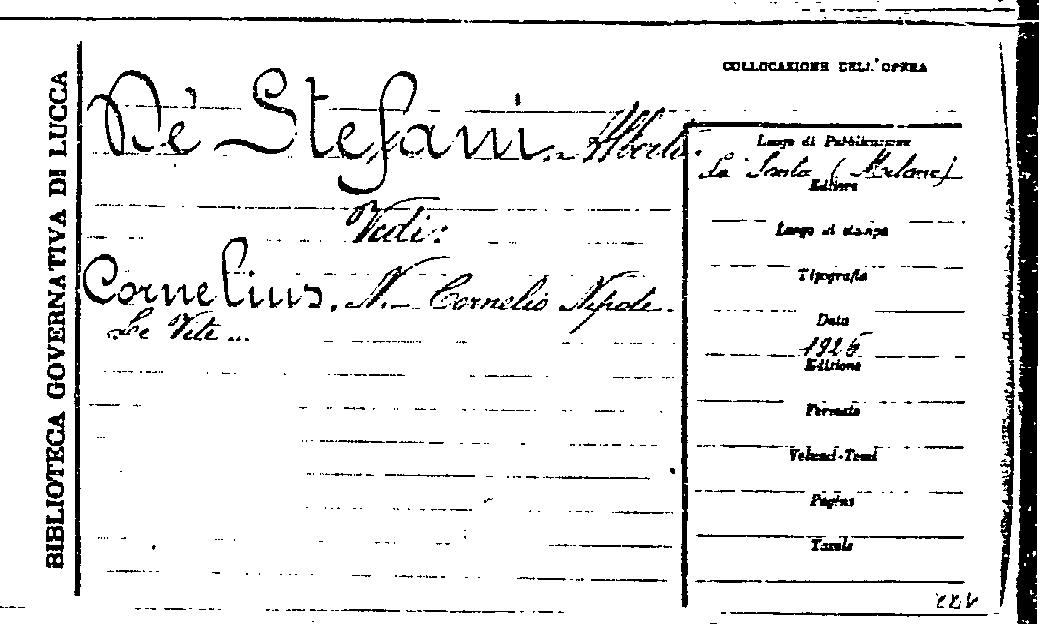 BIBLIOTECA GOVERNATIVA DI LUCCA
COLLOCAZIONE DELL'OPERA
De' Stefani. - Alberto.
Vedi:
Cornelius. N. - Cornelio Nepote.
Le Vite ...
Luogo di Pubblicazione
La Santa (Milano)
Editore
Luogo di stampa
Tipografia
Data
1925
Edizione
Formato
Volumi-Tomi
Pagine
Tavole